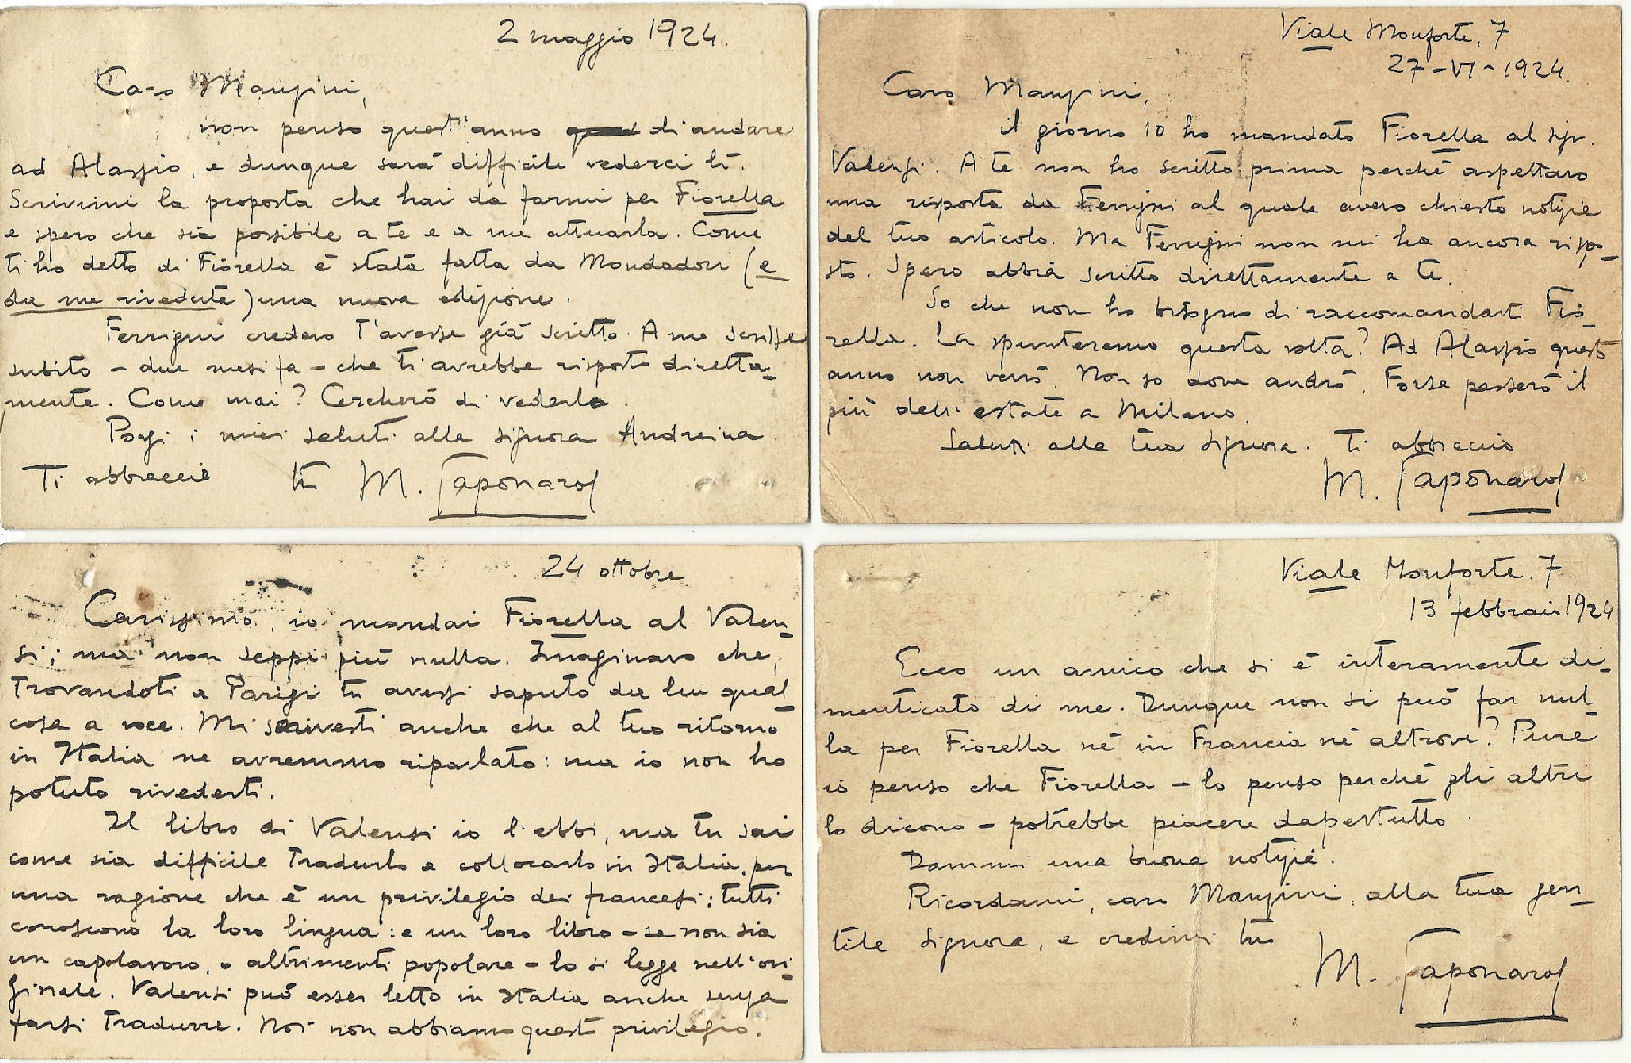 2 maggio 1924.
Caro Manzini,
non penso quest'anno di andare
ad Alassio, e dunque sarà difficile vederci lì.
Scrivimi la proposta che hai da farmi per Fiorella
e spero che sia possibile a te e a me attuarla. Come
ti ho detto di Fiorella è stata fatta da Mondadori (e
da me riveduta) una nuova edizione.
Ferrigni credevo t'avesse già scritto. A me scrisse
subito - due mesi fa - che ti avrebbe risposto diretta-
mente. Come mai? Cercherò di vederlo.
Porgi i miei saluti alla signora Andreina
Ti abbraccio tuo M. Saponaro
Viale Monforte, 7
27-VI-1924.
Caro Manzini,
il giorno 10 ho mandato Fiorella al sigr.
Valensi. A te non ho scritto prima perché aspettavo
una risposta da Ferrigni al quale avevo chiesto notizie
del tuo articolo. Ma Ferrigni non mi ha ancora rispo-
sto. Spero abbia scritto direttamente a te.
So che non ho bisogno di raccomandarti Fio-
rella. La spunteremo questa volta? Ad Alassio quest'
anno non verrò. Non so dove andrò. Forse passerò il
più dell'estate a Milano.
Saluti alla tua signora. Ti abbraccio
M. Saponaro
24 ottobre
Carissimo, io mandai Fiorella al Valen-
si; ma non seppi più nulla. Imaginavo che
trovandoti a Parigi tu avessi saputo da lui qual-
cosa a voce. Mi scrivesti anche che al tuo ritorno
in Italia ne avremmo riparlato: ma io non ho
potuto rivederti.
Il libro di Valensi io l'ebbi, ma tu sai
come sia difficile tradurlo e collocarlo in Italia, per
una ragione che è un privilegio dei francesi: tutti
conoscono la loro lingua: e un loro libro - se non sia
un capolavoro, o altrimenti popolare - lo si legge nell'ori-
ginale. Valensi può esser letto in Italia anche senza
farsi tradurre. Noi non abbiamo questo privilegio.
Viale Monforte. 7
13 febbraio 1924
Ecco un amico che si è interamente di-
menticato di me. Dunque non si può far nul-
la per Fiorella né in Francia né altrove? Pure
io penso che Fiorella - lo penso perché gli altri
lo dicono - potrebbe piacere dapertutto.
Dammi una buona notizia.
Ricordami, caro Manzini, alla tua gen-
tile signora, e credimi tuo
M. Saponaro